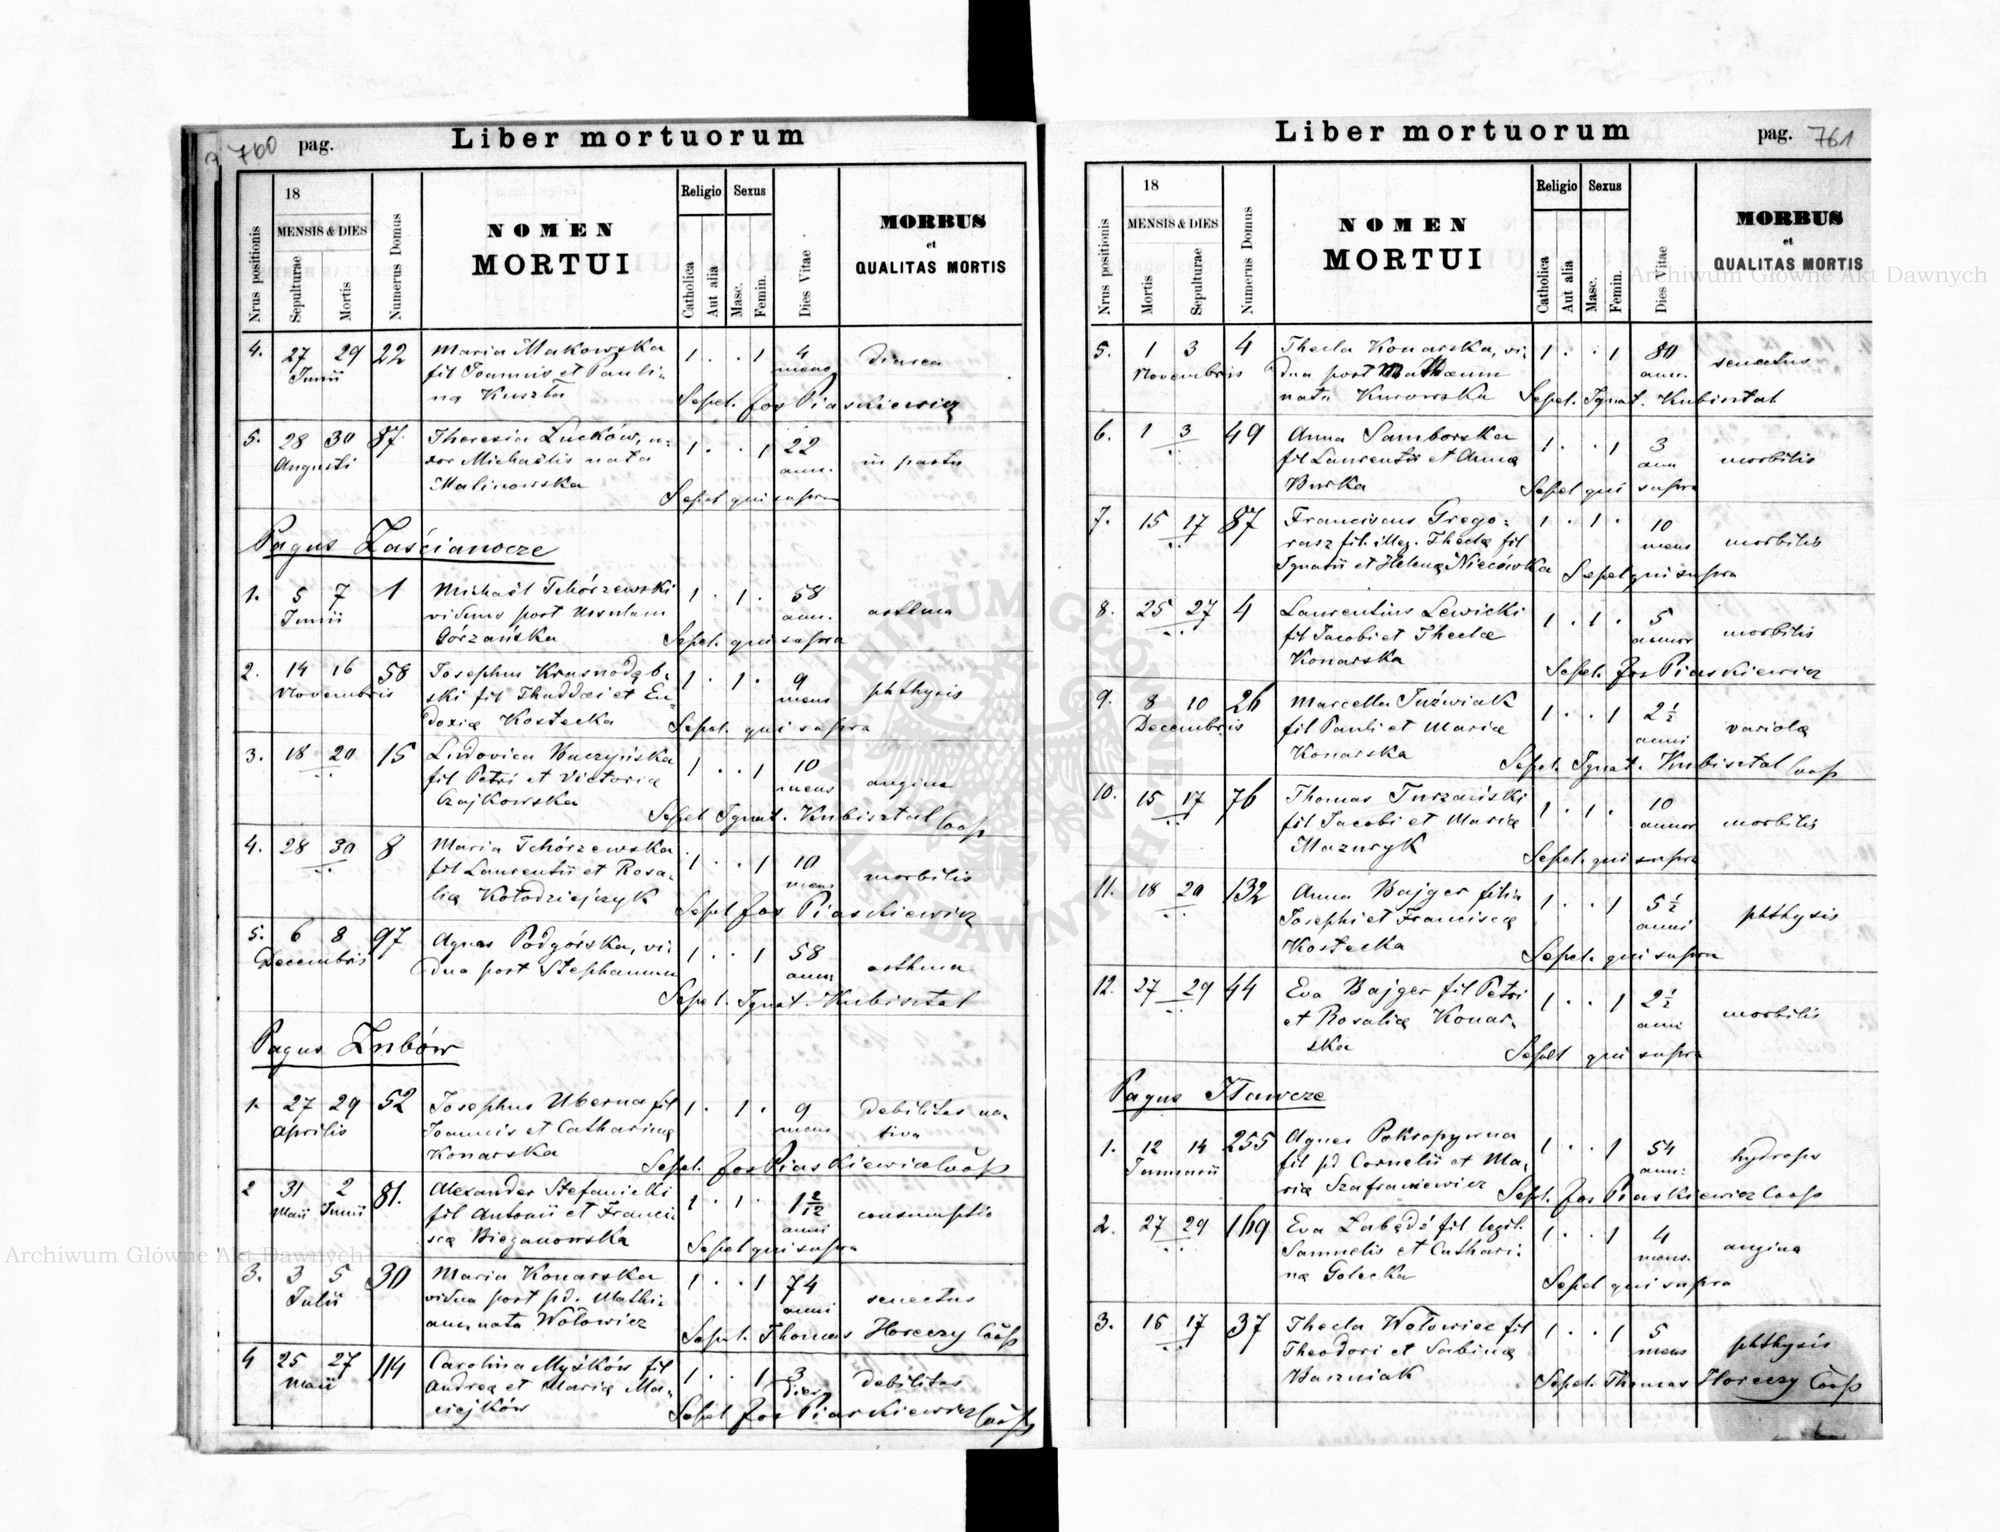 760 pag. Liber mortuorum
Nrus positionis
18
MENSIS & DIES
Sepulturae
Mortis
Numerus Domus
NOMEN
MORTUI
Religio
Catholica
Aut alia
Sexus
Masc.
Femin.
Dies Vitae
MORBUS
et
QUALITAS MORTIS
4. 27 29 22 Maria Makowska 1 . . 1 4 diarea
Junii fil Joannis et Pauli- mens
nę Kuszta Sepel. Jos Piaskiewicz
5. 28 30 87. Theresia Lucków, u- 1 . . 1 22 in partu
Augusti xor Michaëlis nata ann.
Malinowska Sepel qui supra
Pagus Zaścianocze
1. 5 7 1 Michaël Tchórzewski 1 . 1 . 58 asthma
Junii viduus post Ursulam ann.
Górzańska Sepel. qui supra
2. 14 16 58 Josephus Krasnodęb- 1 . 1 . 9 phthysis
Novembris ski fil Thaddæi et Eu- mens
doxię Kostecka Sepel. qui supra
3. 18 20 15 Ludovica Baczyńska 1 . . 1 10 angina
fil Petri et Victorię mens
Czajkowska Sepel Ignat. Kubisztal Coop
4. 28 30 8 Maria Tchórzewska 1 . . 1 10 morbilis
fil Laurentii et Rosa- mens
lię Kołodziejczyk Sepel Jos Piaskiewicz
5. 6 8 97 Agnes Podgórska, vi- 1 . . 1 58 asthma
Decembris dua post Stephanum ann
Sepel. Ignat. Kubisztal
Pagus Zubów
1. 27 29 52 Josephus Uberna fil 1 . 1 . 9 debilitas na-
Aprilis Joannis et Catharinę mens tiva
Konarska Sepel. Jos Piaskiewicz Coop
2 31 2 81. Alexander Stefanicki 1 . 1 . 1 2/12 consumptio
Maii Junii fil Antonii et Franci- anni
scę Bieganowska Sepel qui supra
3. 3 5 30 Maria Konarska 1 . . 1 74 senectus
Julii vidua post pd. Mathi- anni
am nata Wołowicz Sepel. Thomas Horeczy Coop
4 25 27 114 Carolina Myśków fil 1 . . 1 3 debilitas
Maii Andreę et Marię Ma- dies
ciejków Sepel Jos Piaskiewicz Coop
Liber mortuorum pag. 761
Nrus positionis
18
MENSIS & DIES
Mortis
Sepulturae
Numerus Domus
NOMEN
MORTUI
Religio
Catholica
Aut alia
Sexus
Masc.
Femin.
Dies Vitae
MORBUS
et
QUALITAS MORTIS
5. 1 3 4 Thecla Konarska, vi- 1 . . 1 80 senectus
Novembris dua post Mathæum ann.
nata Kurowska Sepel. Ignat. Kubisztal
6. 1 3 49 Anna Samborska 1 . . 1 3 morbilis
fil Laurentii et Annę ann
Burka Sepel qui supra
7. 15 17 87 Franciscus Grego- 1 . 1 . 10 morbilis
rasz fil. illeg. Theclę fil mens
Ignatii et Helenę Niecówka Sepel qui supra
8. 25 27 4 Laurentius Lewicki 1 . 1 . 5 morbilis
fil Jacobi et Theclę annor
Konarska Sepel. Jos Piaskiewicz
9. 8 10 26 Marcella Juźwiak 1 . . 1 2 1/2 variola
Decembris fil Pauli et Marię anni
Konarska Sepel. Ignat. Kubisztal Coop
10. 15 17 76 Thomas Turzański 1 . 1 . 10 morbilis
fil Jacobi et Marię annor
Mazuryk Sepel. qui supra
11. 18 20 132 Anna Bajger filia 1 . . 1 5 1/2 phthysis
Josephi et Franciscę anni
Kostecka Sepel. qui supra
12. 27 29 44 Eva Bajger fil Petri 1 . . 1 2 1/2 morbilis
et Rosalię Konar- anni
ska Sepel qui supra
Pagus Iławcze
1. 12 14 255 Agnes Pokropywna 1 . . 1 54 hydrops
Januarii fil pd Cornelii et Ma- ann.
rię Szafraniewicz Sepl. Jos Piaskiewicz Coop
2. 27 29 169 Eva Łabędź fil legit. 1 . . 1 4 angina
Samuelis et Cathari- mens.
nę Golecka Sepel qui supra
3. 16 17 37 Thecla Wołowiec fil 1 . . 1 5 phthysis
Theodori et Sabinę mens
Baszniak Sepel. Thomas Horeczy Coop
Archiwum Główne Akt Dawnych
Archiwum Główne Akt Dawnych
ARCHIWUM GŁÓWNE AKT DAWNYCH